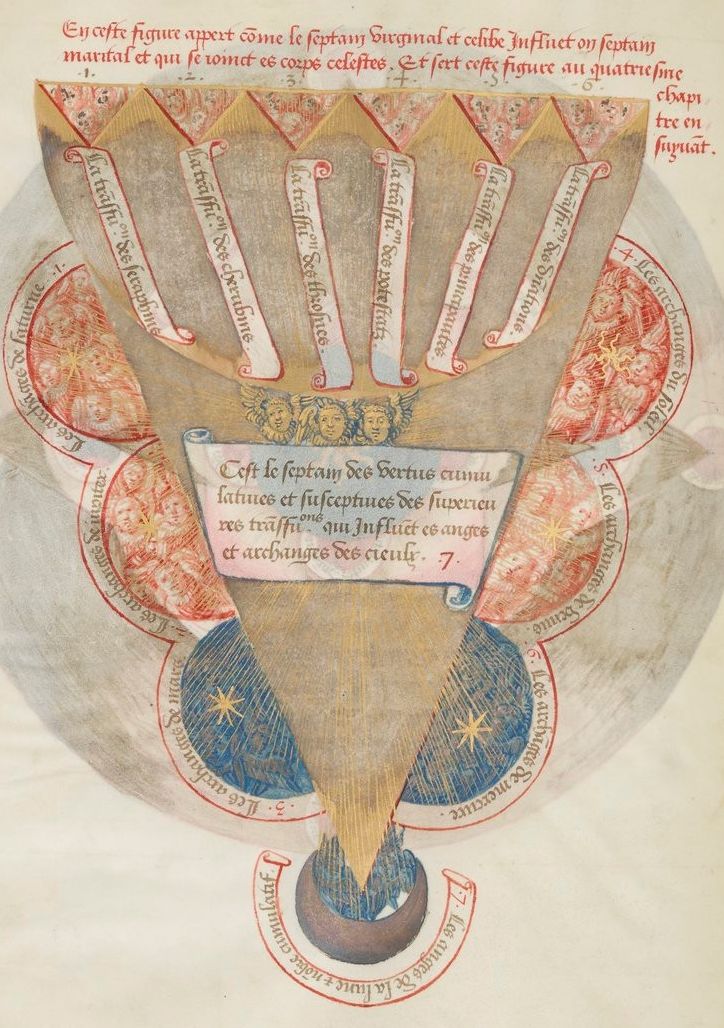 En ceste figure appert cōme le septain virginal et celibe Influet on septain
marital et qui se ioinct es corps celestes. Et sert ceste figure au quatriesme
chapi
tre en
suyuāt.
.1. .2. .3. .4. .5. .6.
La trāsfu.on des seraphins
La trāsfu.on des cherubins
La trāsfu.on des throsnes
La trāsfu.on des potestatz
La trāsfu.on des principautes
La trāsfu.on des dn̄ations
Cest le septain des vertus cumu
latiues et susceptiues des superieu
res trāsfu.ons qui Influēt es anges
et archanges des cieulx. 7.
Les archāges de saturne .1.
Les archāges de iupiter. 2.
Les archāges de mars .3.
.4. Les archāges du soleil
.5. Les archāges de venus
.6. Les archāges de mercure.
.7. Les anges de la lune + nōbre cumulatif.